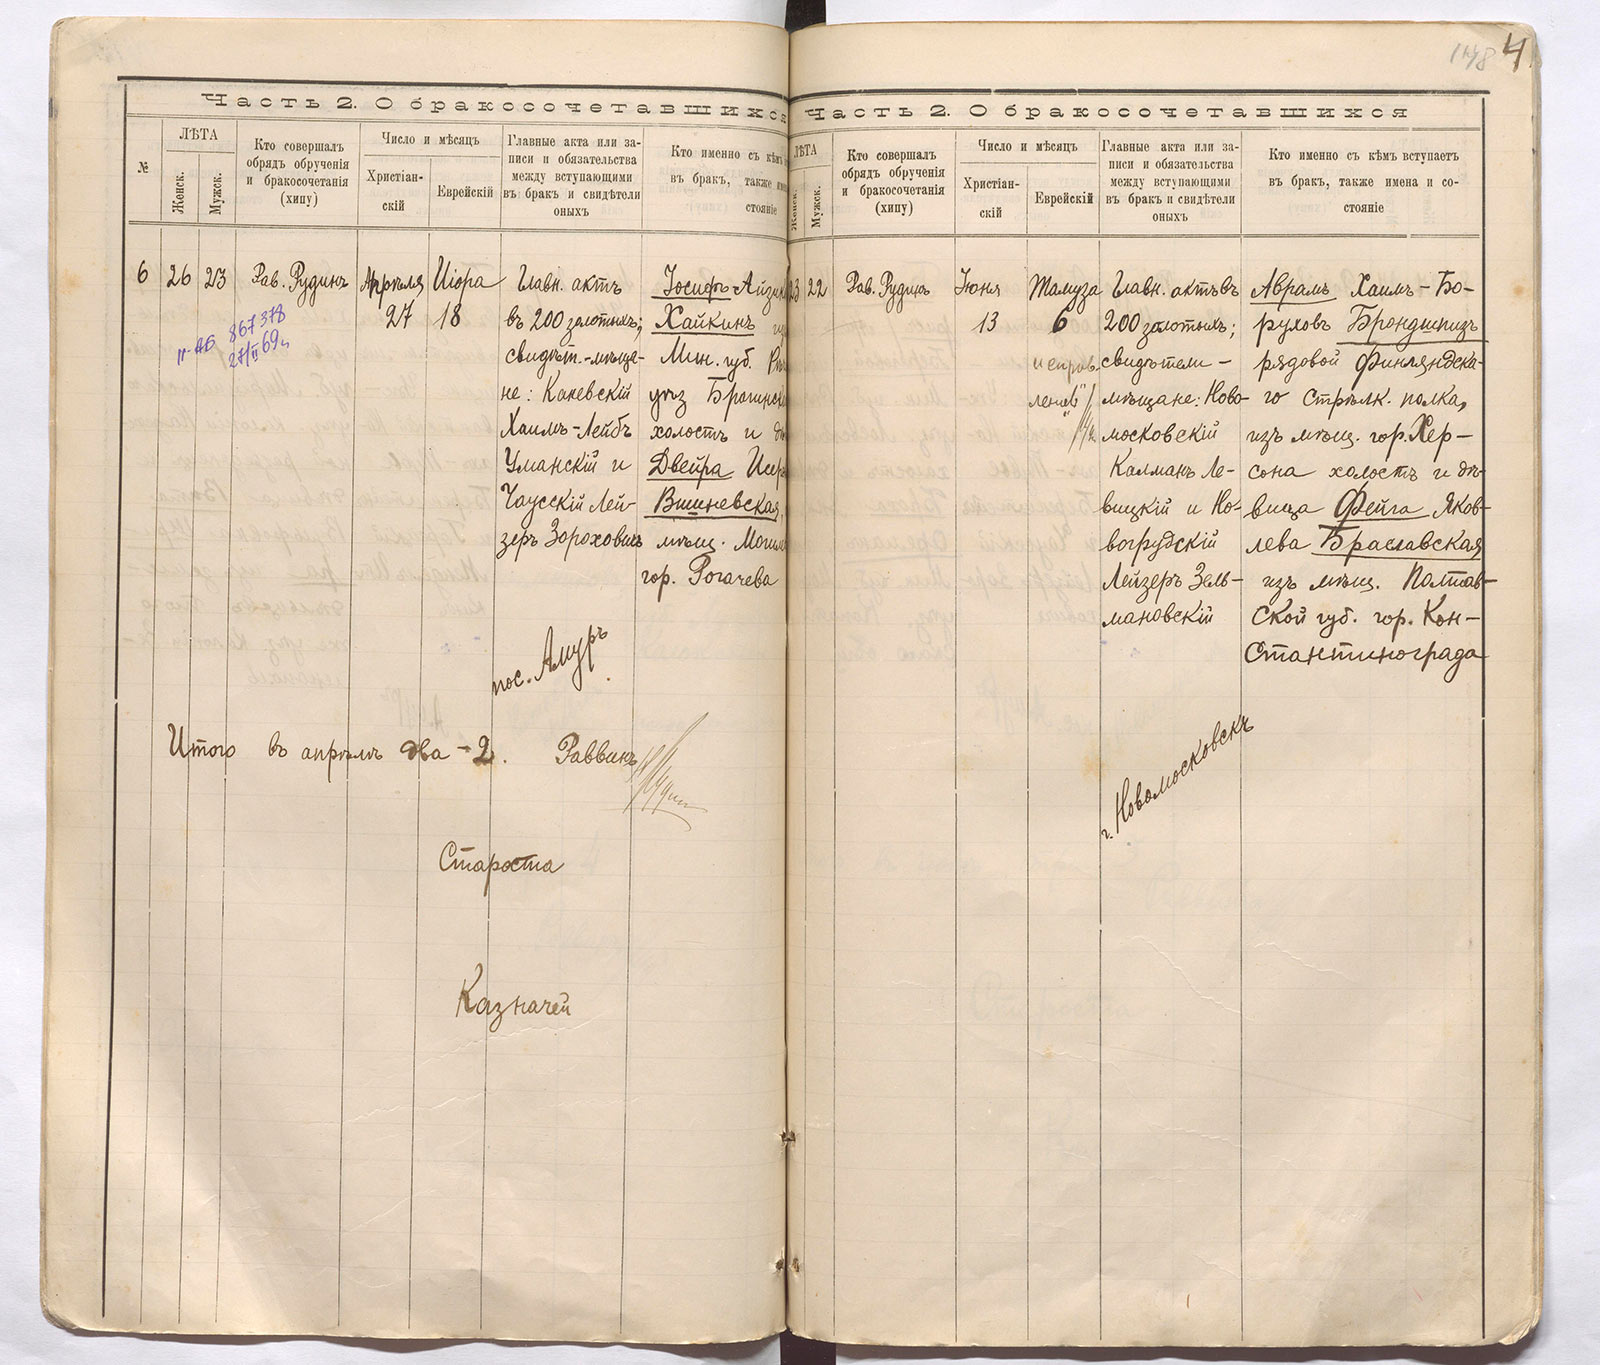 Часть 2. О бракосочетавшихся
№
ЛѢТА
Женск.
Мужск.
Кто совершалъ
обрядъ обрученія
и бракосочетанія
(хипу)
Число и мѣсяцъ
Христіан-
скій
Еврейскій
Главные акта или за-
писи и обязательства
между вступающими
въ бракъ и свидѣтели
оныхъ
Кто именно съ кѣмъ
въ бракъ, также
стояніе
6
26
23
Рав. Рудинъ
Апрѣля
27
Иіора
18
Главн. актъ
въ 200 золотыхъ;
свидѣт.-мѣща-
не: Каневскій
Хаимъ-Лейбъ
Уманскій и
Чаусскій Лей-
зеръ Зороховичъ
Іосифъ
Хайкинъ
Мин. губ.
уѣз
холостъ и
Двейра
Вишневская,
мѣщ.
гор. Рогачева
867378
пос. Амуръ
Итого въ апрѣлѣ два - 2. Раввинъ
Староста
Казначей
4
Часть 2. О бракосочетавшихся
ЛѢТА
Женск.
Мужск.
Кто совершалъ
обрядъ обрученія
и бракосочетанія
(хипу)
Число и мѣсяцъ
Христіан-
скій
Еврейскій
Главные акта или за-
писи и обязательства
между вступающими
въ бракъ и свидѣтели
оныхъ
Кто именно съ кѣмъ вступаетъ
въ бракъ, также имена и со-
стояніе
22
Рав. Рудинъ
Іюня
13
Тамуза
6
Главн. актъ въ
200 золотыхъ;
свидѣтели -
мѣщане: Ново-
московскій
Калманъ Ле-
вицкій и Но-
вогрудскій
Лейзеръ Зель-
мановскій
Аврамъ Хаимъ-Бо-
руховъ Брондшпизъ
рядовой Финляндска-
го Стрѣлк. полка,
изъ мѣщ. гор. Хер-
сона холостъ и дѣ-
вица Фейга Яков-
лева Браславская
изъ мѣщ. Полтав-
ской губ. гор. Кон-
стантинограда
г. Новомосковскъ